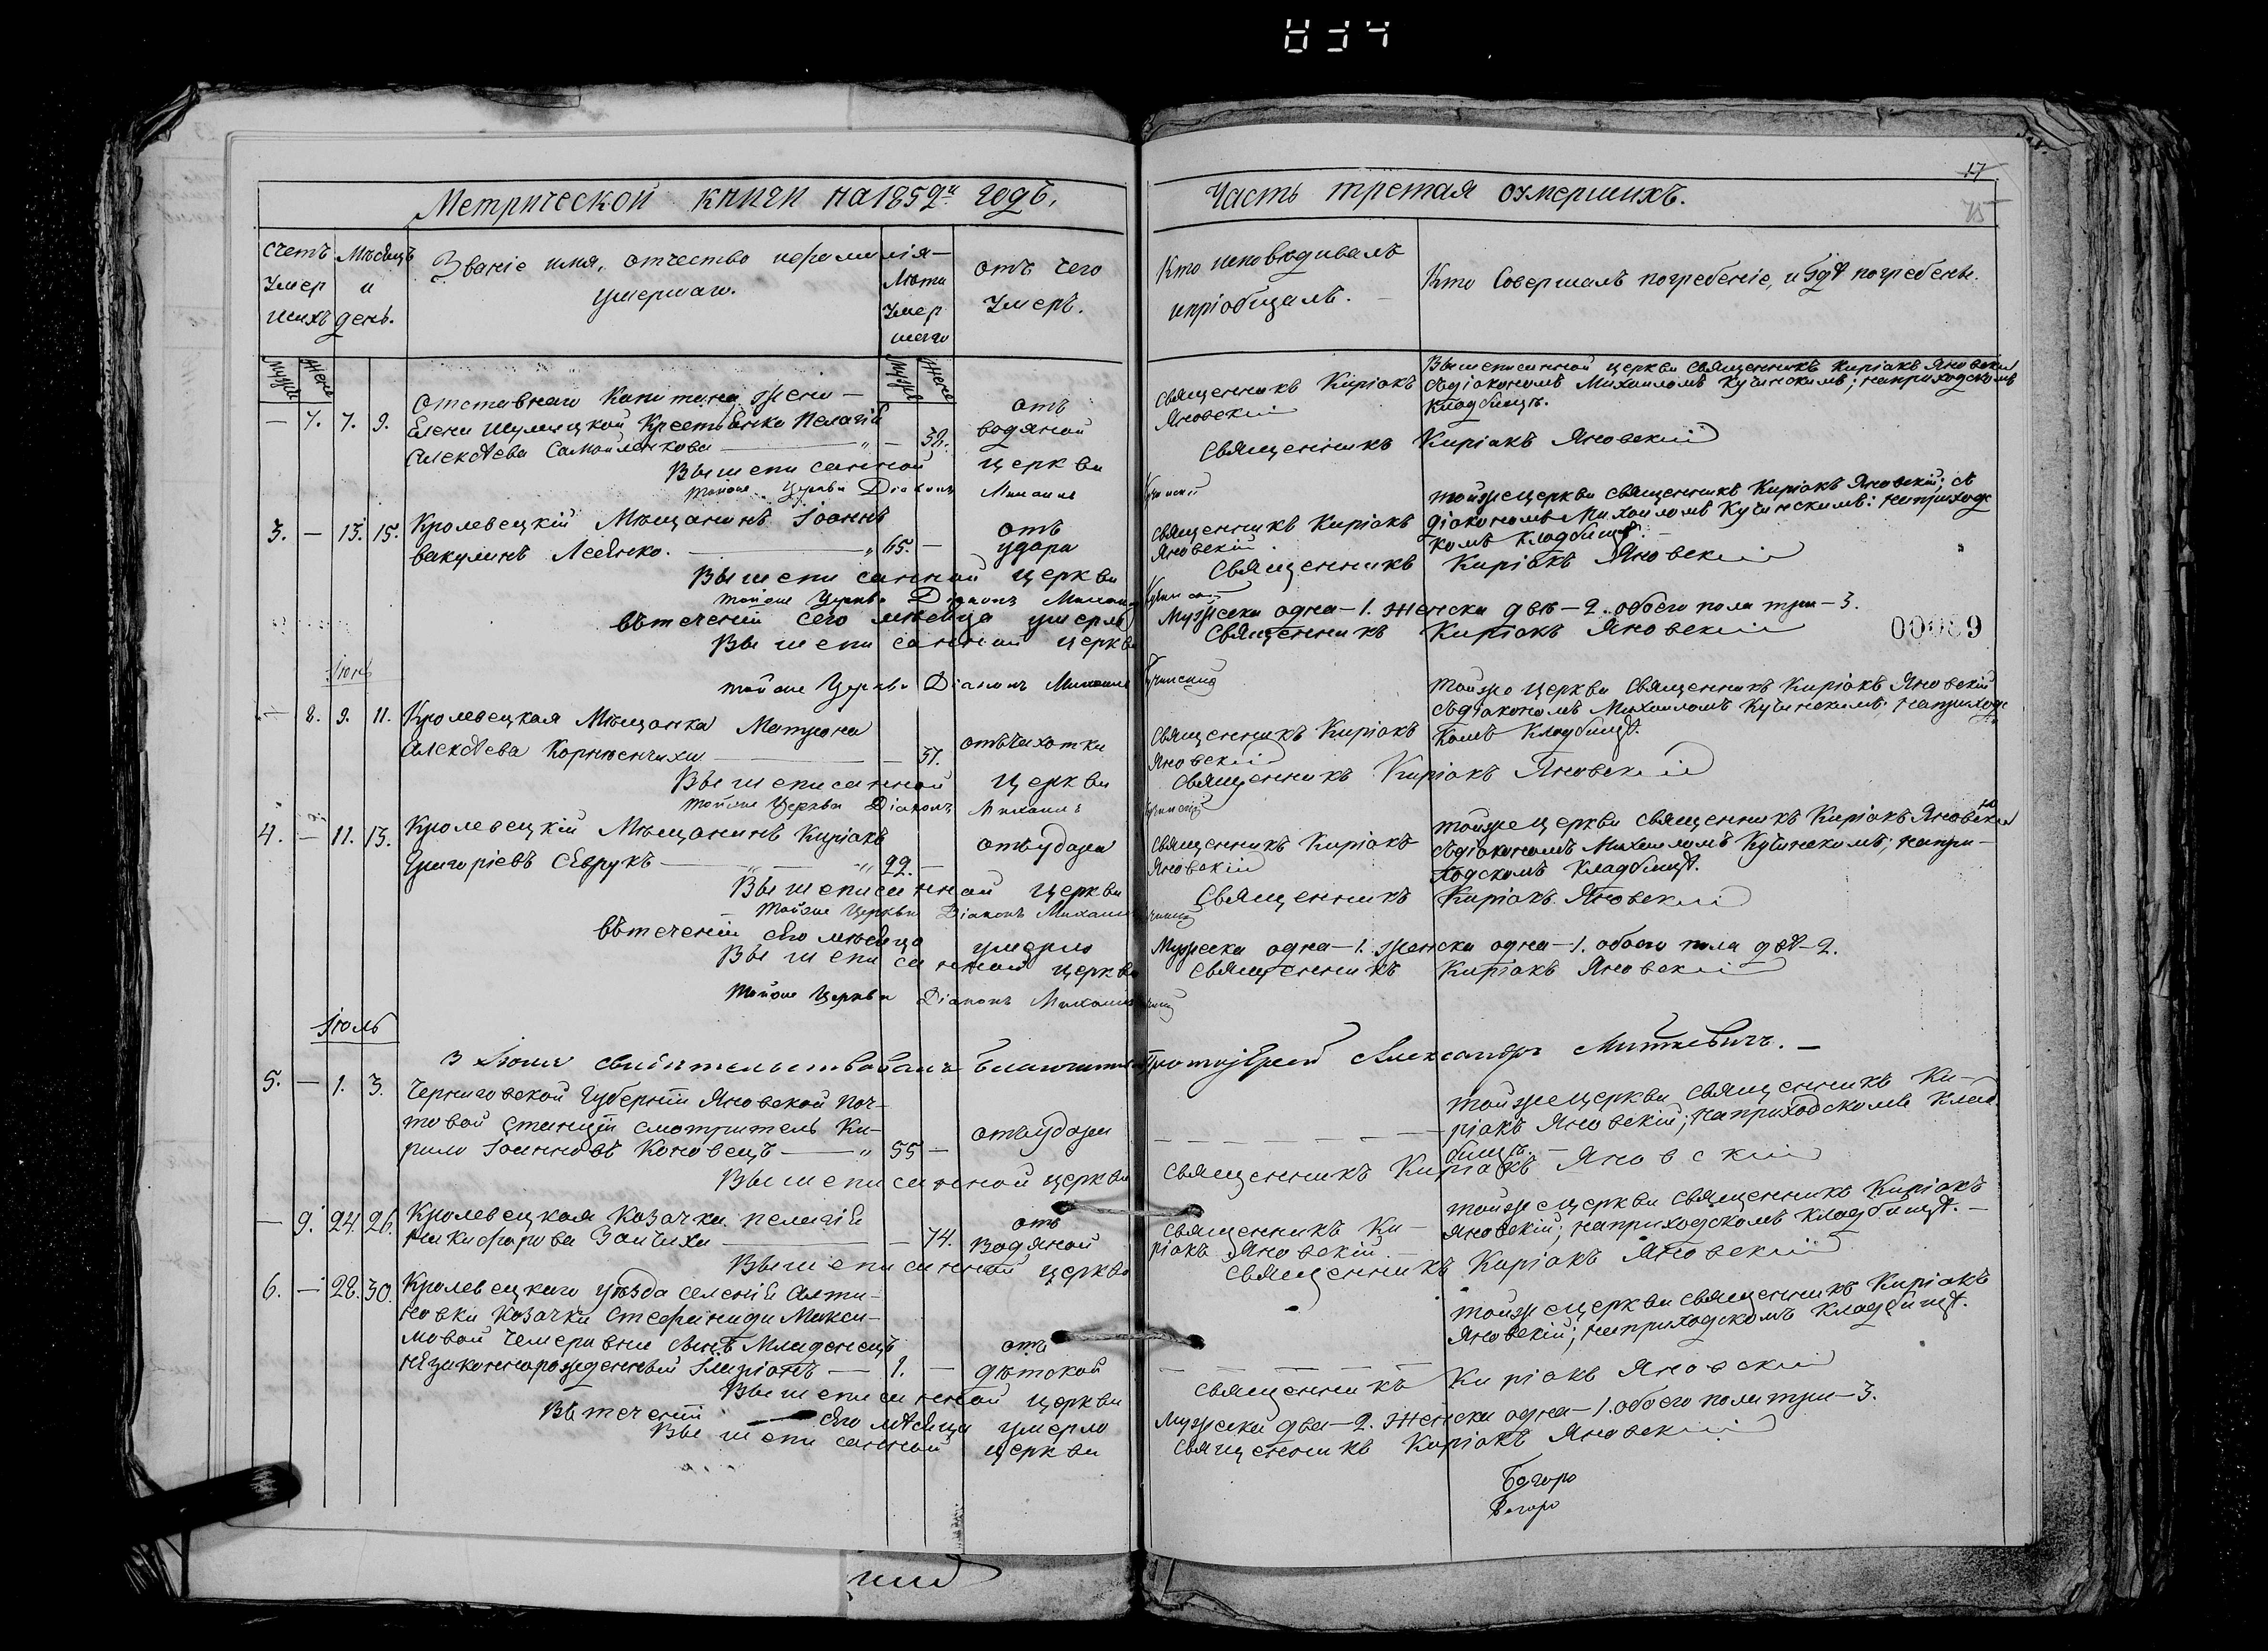 834
Метрической книги на 1852й годъ.
Счетъ умер шихъ
Мѣсяцъ и день.
Званіе имя, отчество и фамилія
умершаго.
Лѣта умер шаго
отъ чего
умеръ.
Мужес Женс
Мужес Женс
— 7. 7. 9.
Отставнаго Капитана жены
Елены Шулицкой Крестьянка Пелагія
Алексѣева Самойленкова — 38.
отъ
водяной
Вышеписанной церкви
тойже Церкви Діаконъ Михаилъ
3. — 13. 15. Кролевецкій Мѣщанинъ Іоаннъ
Вакулинъ Лсенко. — „ 65. —
отъ
удара
Вышеписанной церкви
тойже Церкви Діаконъ Михаилъ
Втеченіи сего мѣсяца умерло
Вышеписанной церкви
Іюнь
тойже Церкви Діаконъ Михаилъ
— 8. 9. 11. Кролевецкая Мѣщанка Матрона
Алексѣева Корнюенчиха — 37.
отъ чахотки
Вышеписанной церкви
тойже Церкви Діаконъ Михаилъ
4. — 11. 13. Кролевецкій Мѣщанинъ Киріакъ
Григоріевъ Сѣврукъ — „ 22. —
отъ удара
Вышеписанной церкви
тойже Церкви Діаконъ Михаилъ
Втеченіи сего мѣсяца умерло
Вышеписанной церкви
тойже Церкви Діаконъ Михаилъ
Іюль
3 Іюля свидѣтельствовалъ Благочинный
5. — 1. 3. Черниговской Губерніи Яновской поч-
товой станціи смотритель Ки-
рило Іоанновъ Коновецъ — „ 55 —
отъ удара
Вышеписанной церкви
— 9. 24. 26. Кролевецкая Козачка Пелагія
Никифорова Заичиха — 74.
отъ
водяной
Вышеписанной церкви
6. — 28. 30. Кролевецкаго уѣзда селенія Алти-
новки Козачки Стефаниды Макси-
мовой Чемеравны сынъ Младенецъ
незаконнорожденный Іларіонъ — 1. —
отъ
дѣтской
Вышеписанной церкви
Втеченіи сего мѣсяца умерло
Вышеписанной церкви
Часть третая оумершихъ.
17
75
Кто исповѣдивалъ
и пріобщалъ.
Кто Совершалъ погребеніе, и гдѣ погребены.
священникъ Киріакъ
Яновскій
Вышеписанной церкви Священникъ Киріакъ Яновскій
съ діакономъ Михаиломъ Кучинскимъ; на приходскомъ
кладбищѣ.
Священникъ Киріакъ Яновскій
Кучинскій
священникъ Киріакъ
Яновскій.
тойже церкви священникъ Киріакъ Яновскій; съ
діакономъ Михаиломъ Кучинскимъ: на приходс
комъ кладбищѣ.
Священникъ Киріакъ Яновскій
Мужеска одна—1. женска двѣ—2. обоего пола три—3.
Священникъ Киріакъ Яновскій
00089
Кучинский
священникъ Киріакъ
Яновскій
тойже церкви Священникъ Киріакъ Яновскій
съ діакономъ Михаиломъ Кучинскимъ; на приходс
комъ кладбищѣ.
Священникъ Киріакъ Яновскій
священникъ Киріакъ
Яновскій
тойже церкви священникъ Киріакъ Яновскій
съ діакономъ Михаиломъ Кучинскимъ; на при-
ходскомъ кладбищѣ.
Священникъ Киріакъ Яновскій
Мужеска одна—1. женска одна—1. обоего пола двѣ—2.
Священникъ Киріакъ Яновскій
Протоіерей Александръ Миткевичъ. —
тойже церкви священникъ Ки-
ріакъ Яновскій; на приходскомъ клад
бищѣ.
священникъ Киріакъ Яновскій
Священникъ Ки-
ріакъ Яновскій. —
тойже церкви священникъ Киріакъ
Яновскій; на приходскомъ кладбищѣ. —
Священникъ Киріакъ Яновскій
тойже церкви священникъ Киріакъ
Яновскій; на приходскомъ кладбищѣ.
священникъ Киріакъ Яновскій
Мужеска два—2. женска одна—1. обоего пола три—3.
священникъ Киріакъ Яновскій